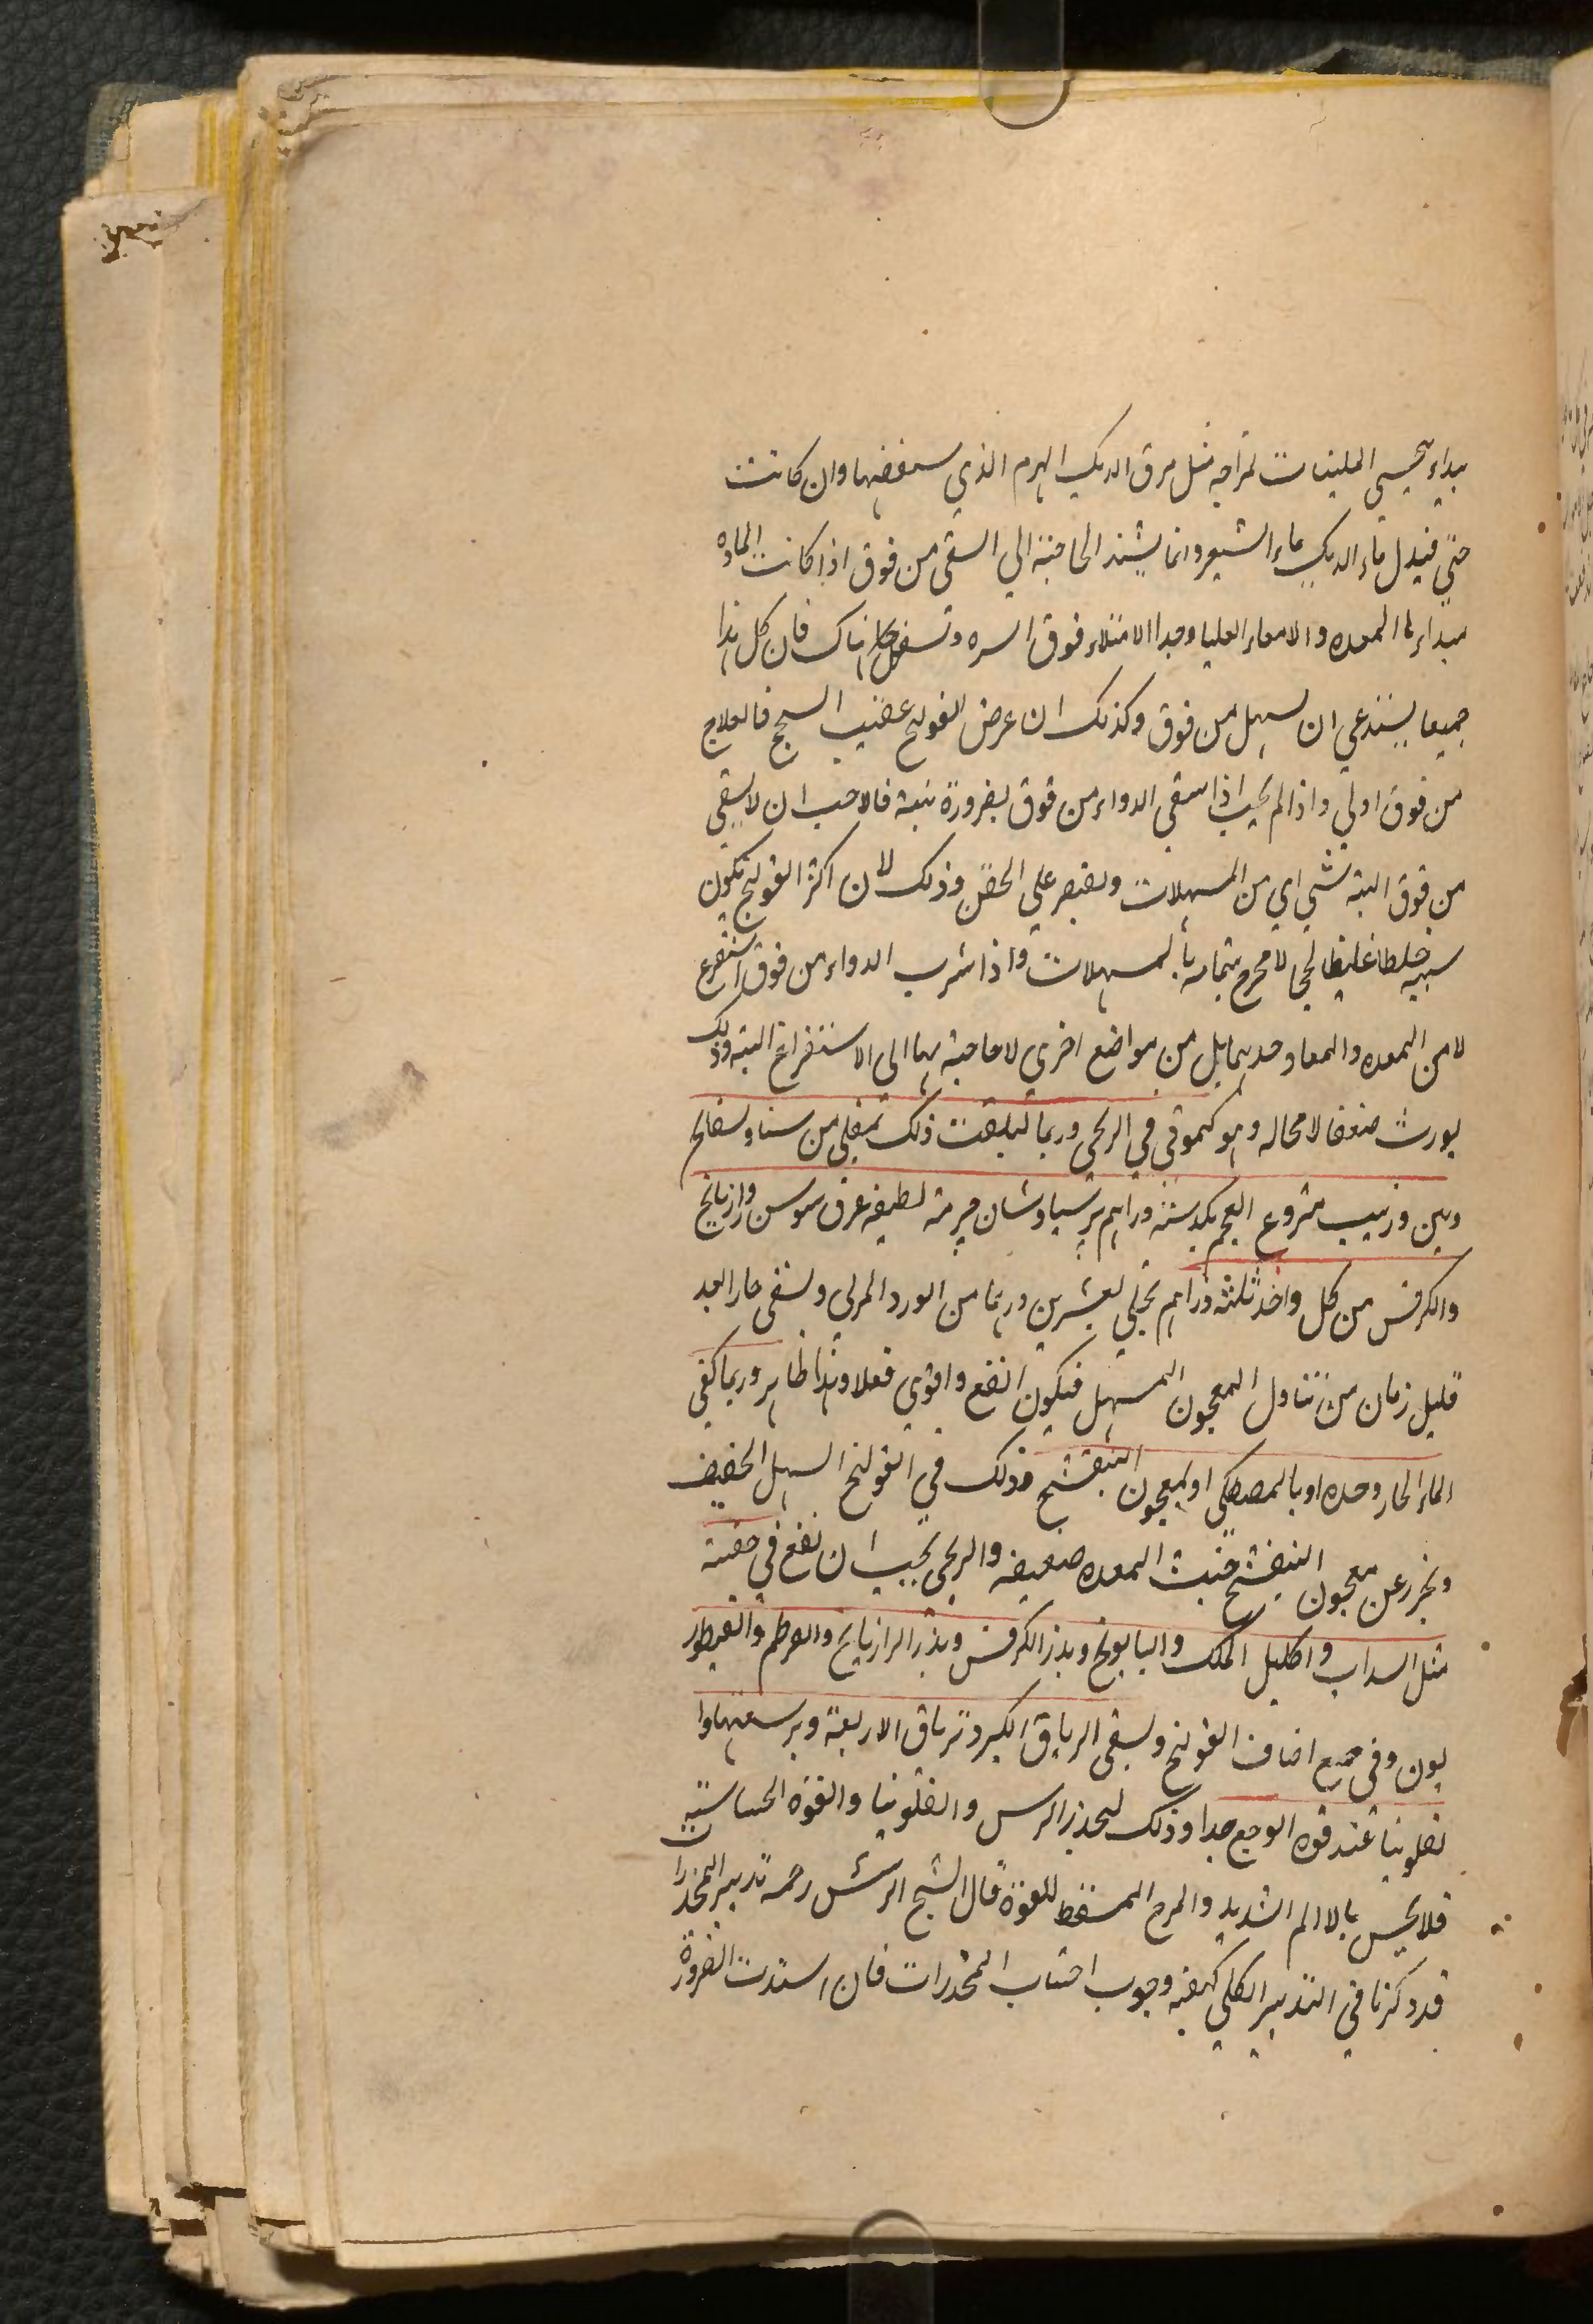 يبداء يحسي الملينات لمزاجه مثل مرق الديك الهرم الذي سنفضها وان كانت
حتي فيدل ماء الديك ماء الشعير وانما يشتد الحاجة الي السقي من فوق اذا كانت المادة
مبداءها المعده والامعاء العليا وجدا الامتلاء فوق السره وتسفل هناك فان كل هذا
جميعا يستدعي ان يسهل من فوق وكذلك ان عرض القولنج عقيب السحج فالعلاج
من فوق اولي واذا لم يجب اذا سقي الدواء من فوق لضرورة بتة فالاحب ان لا يسقي
من فوق البته شي اي من المسهلات ويقتصر علي الحقن وذلك لان اكثر القولنج يكون
سببه خلطا غليظا لحجا لا يخرج بتمامه بالمسهلات واذا شرب الدواء من فوق استفرغ
لا من المعده والمعا وحدهما بل من مواضع اخري لا حاجة بها الي الاستفراغ البته وذلك
يورث ضعفا لا محاله وهو كموقي في الريحي وربما ذلك بمغلي من سنا وبسفايج
وتين وزبيب منزوع العجم يكد ستة دراهم برسياوشان حزمة لطيفه عرق سوس ورازيانج
والكرفس من كل واحد ثلثة دراهم يحلي بعشرين درهما من الورد المربي ويسقي حارا بعد
قليل زمان من تناول المعجون المسهل فيكون انفع واقوي فعلا وهذا ظاهر وربما كفي
الماء الحار وحده او بالمصطكي او بمعجون البنفسج وذلك في القولنج السهل الخفيف
ويحرز عن معجون البنفسج حيث المعده ضعيفه والريحي يجب ان يقع في حقنته
مثل السداب واكليل الملك والبابونج وبذر الكرفس وبذر الرازيانج والقرطم والقنطور
يون وفي جميع اصناف القولنج ويسقي الترياق الكبير وترياق الاربعة وبرشعثها وا
لفلونيا عند قوة الوجع جدا وذلك لتخدير البرس والفلونيا والقوة الحساسيه
فلا يحس بالالم الشديد والمرح المسقط للقوة قال الشيخ الرئيس رحمه تدبير المخدرا
قد ذكرنا في التدبير الكلي كيفيه وجوب اجتناب المخدرات فان اشتدت الضرورة